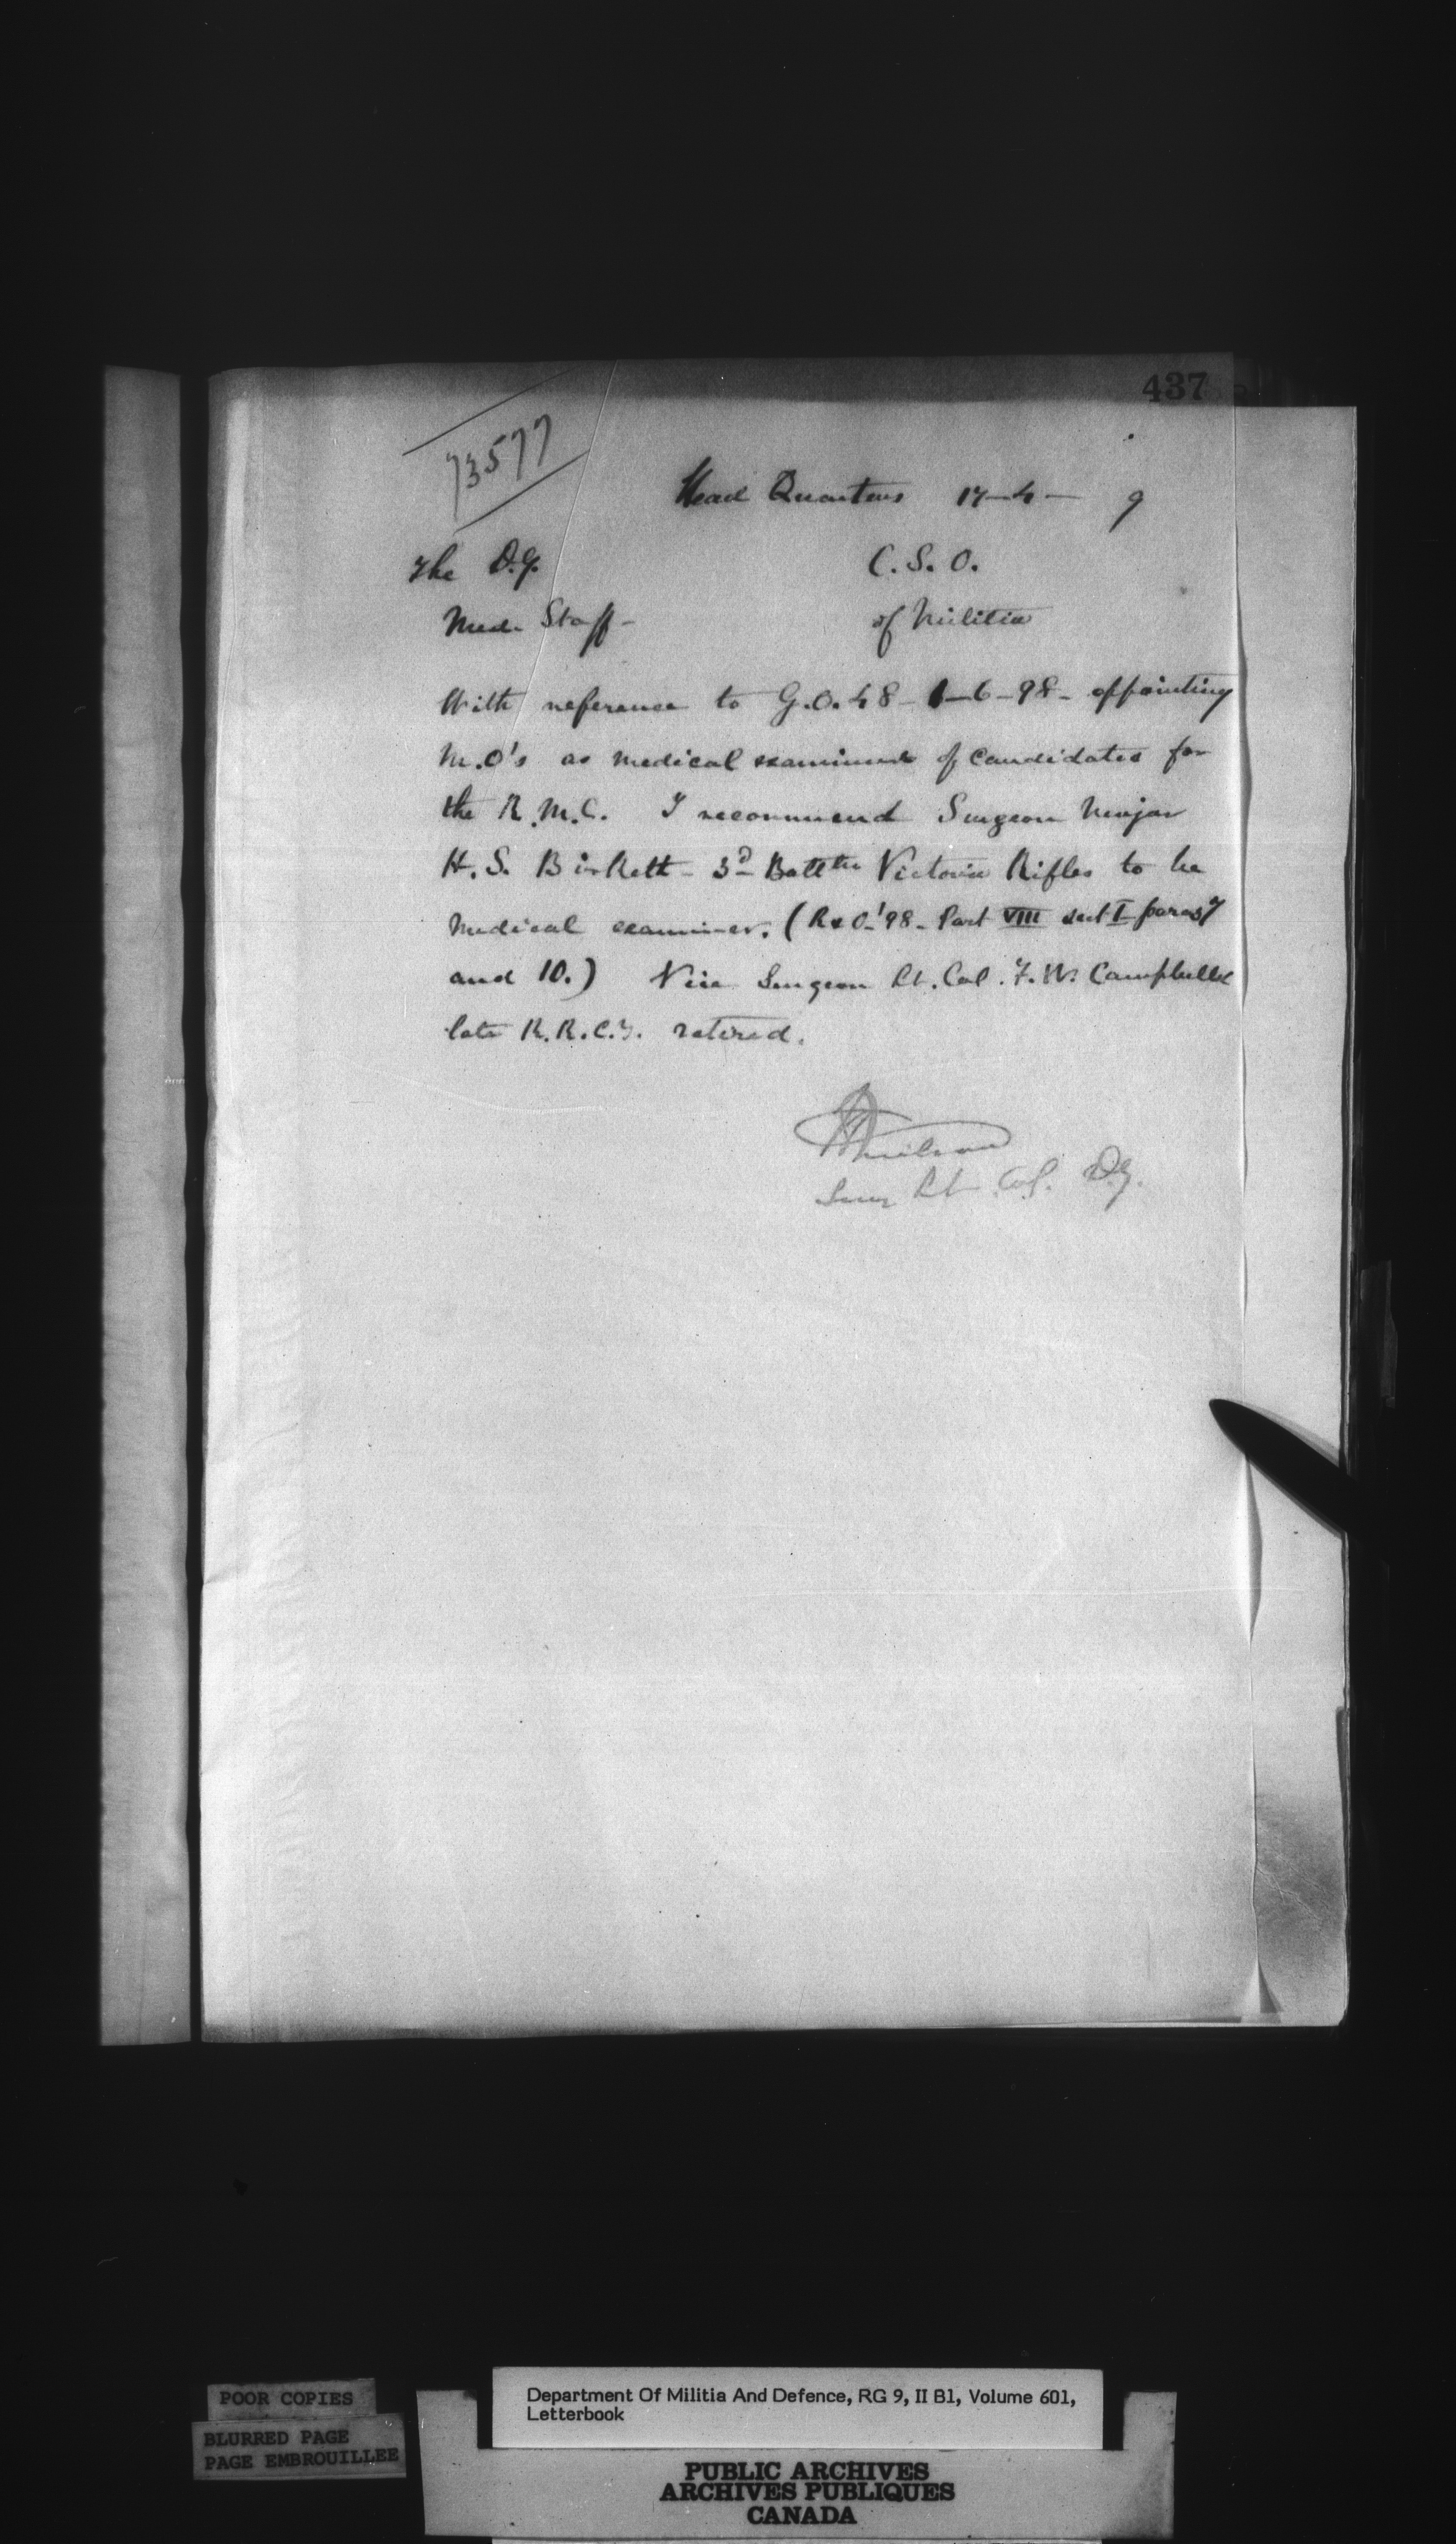 437
73577
Head Quarters 17-4- 9
The D.G. C.S.O.
Med. Staff - of Militia
With reference to G.O. 48 - 1-6-98- appointing
M.O's as medical examiners of candidates for
the R.M.C. I recommend Surgeon Major
H.S. Birkett - 3rd Battn Victoria Rifles to be
medical examiner. (R & O-'98- Part VIII sect I paras 7
and 10.) Vice Surgeon Lt. Col. F.W. Campbell
late R.R.C.I. retired.
Surg Lt. Col. D.G.
POOR COPIES
BLURRED PAGE
PAGE EMBROUILLEE
Department Of Militia And Defence, RG 9, II B1, Volume 601,
Letterbook
PUBLIC ARCHIVES
ARCHIVES PUBLIQUES
CANADA